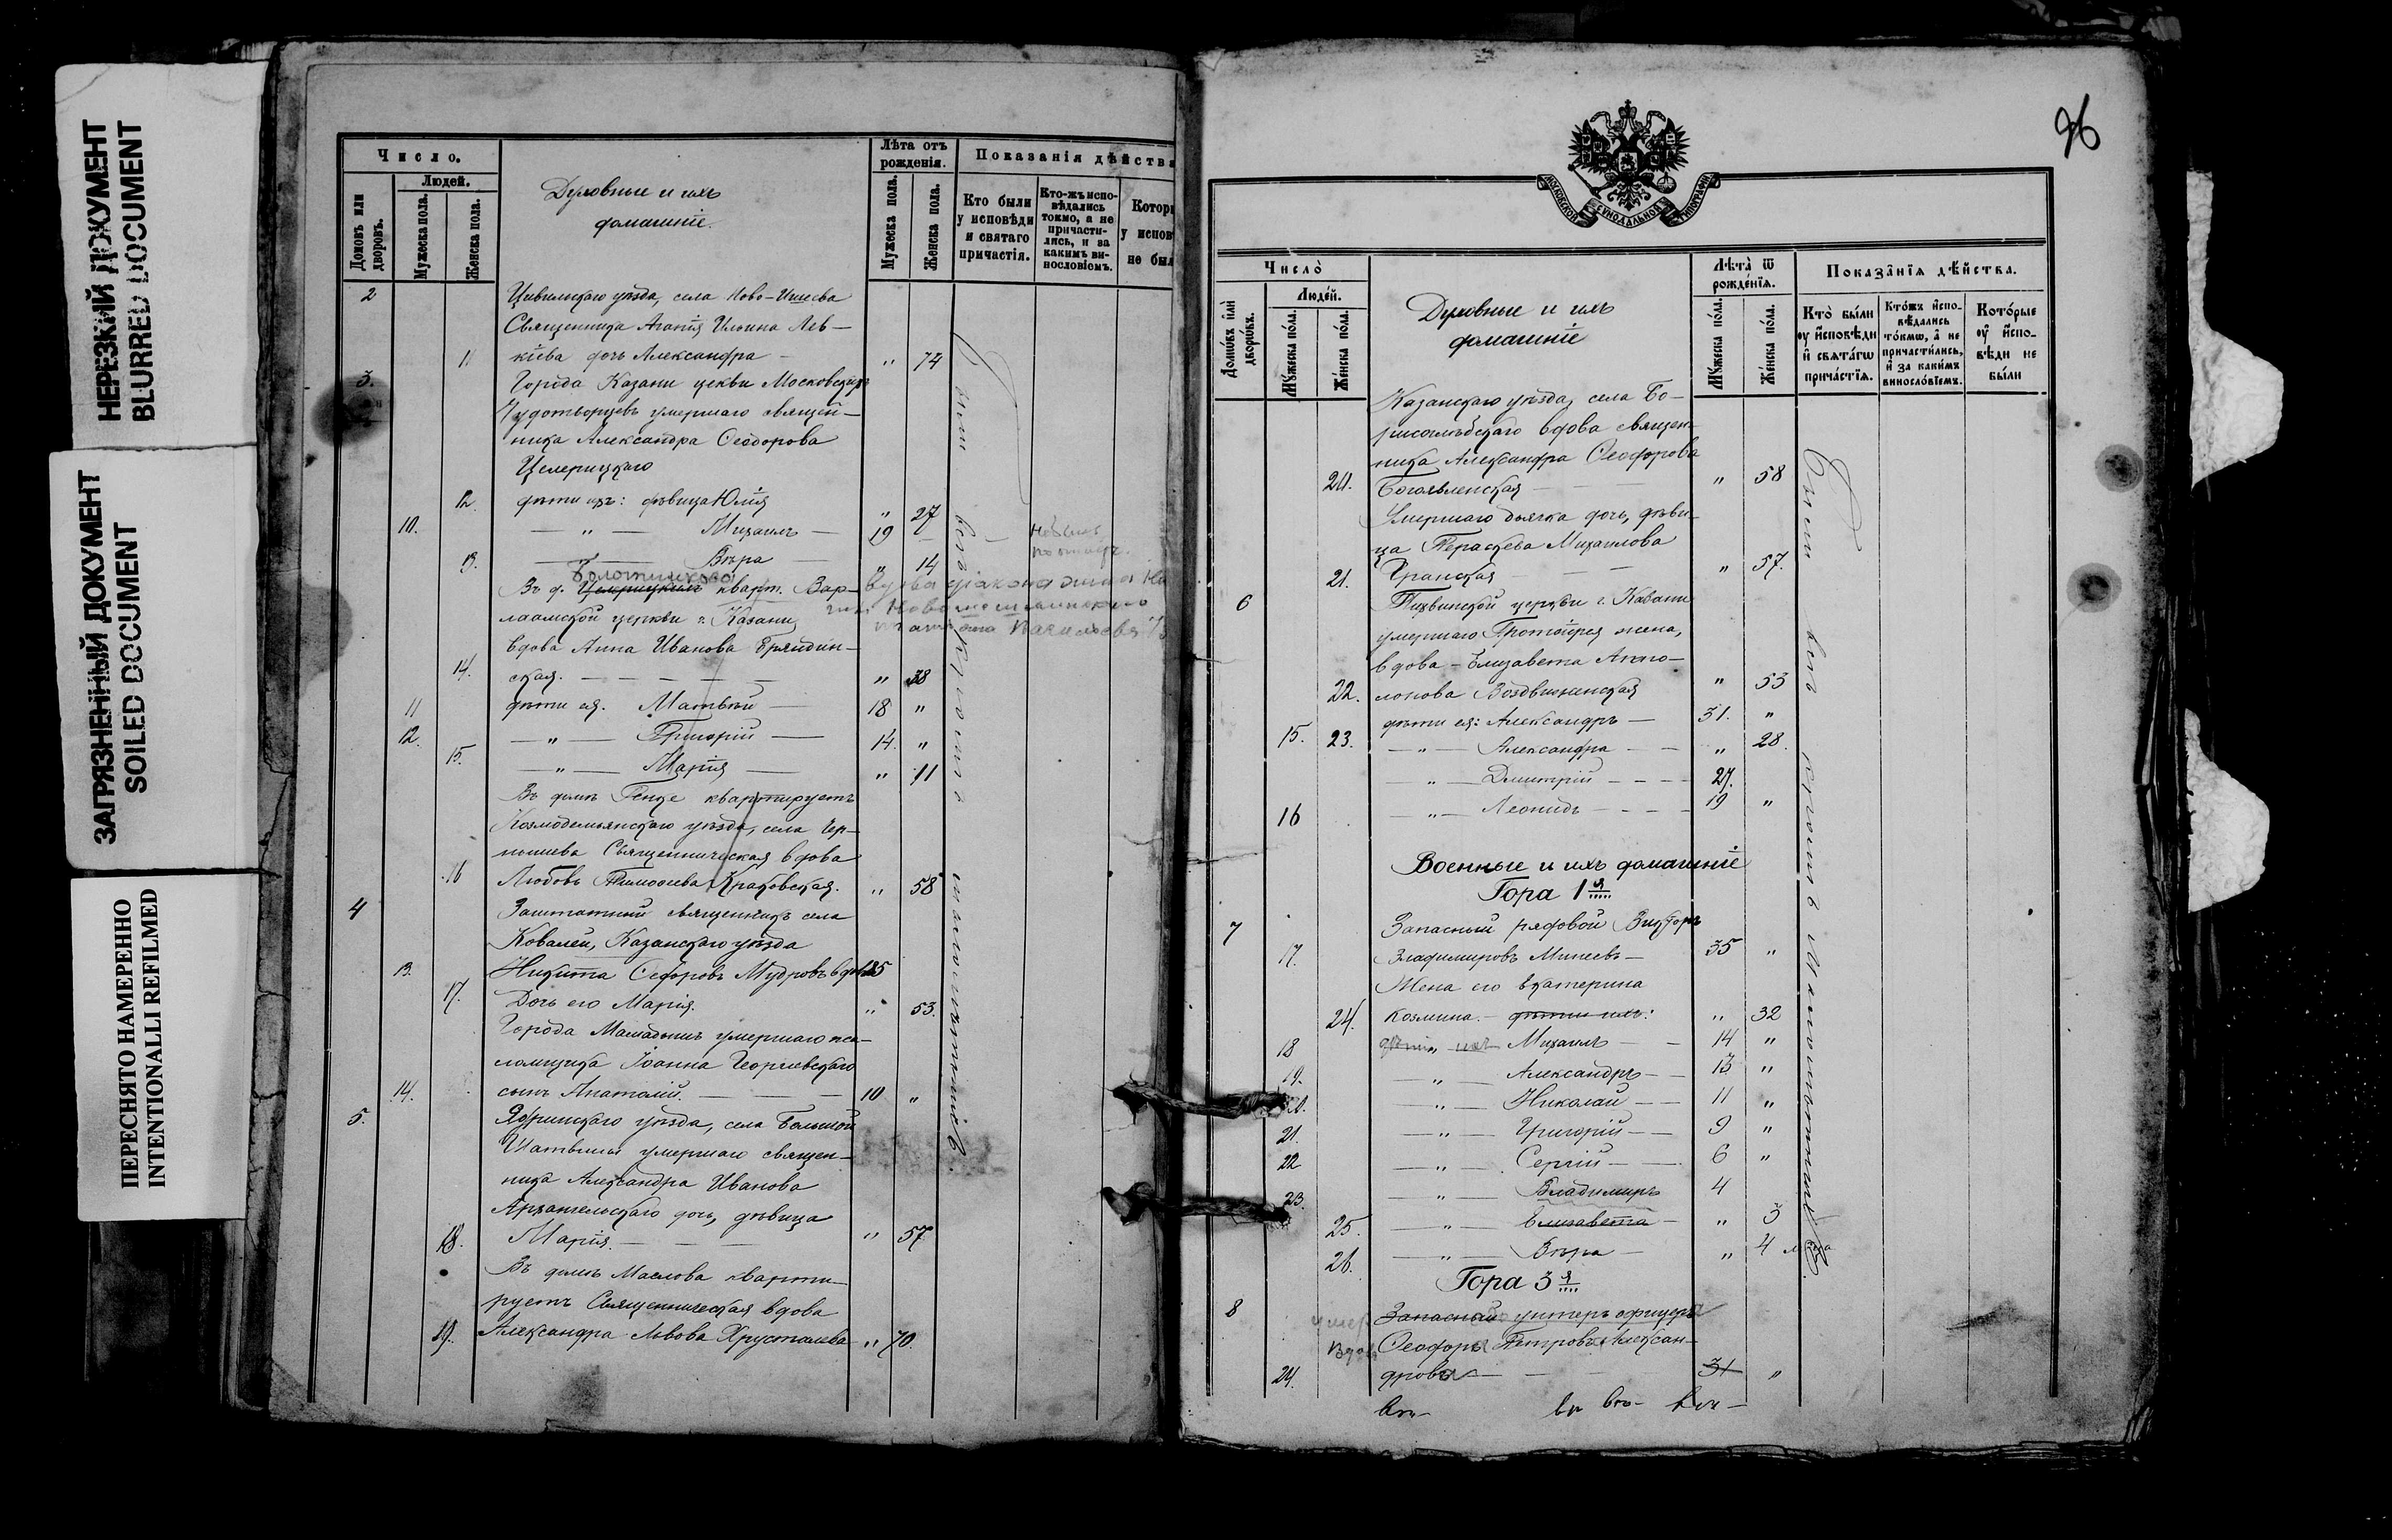 НЕРЕЗКИЙ ДОКУМЕНТ
BLURRED DOCUMENT
ЗАГРЯЗНЕННЫЙ ДОКУМЕНТ
SOILED DOCUMENT
ПЕРЕСНЯТО НАМЕРЕННО
INTENTIONALLI REFILMED
Число.
Людей.
Домовъ или дворовъ.
Мужеска пола.
Женска пола.
Духовные и ихъ
домашніе.
Лѣта отъ
рожденія.
Мужеска пола.
Женска пола.
Показанія дѣйства
Кто были
у исповѣди
и святаго
причастія.
Кто-жъ испо-
вѣдались
токмо, а не
причасти-
лись, и за
какимъ ви-
нословіемъ.
Котор
у испов
не был
2 Цивильскаго уѣзда, села Ново-
Священника Ильина Лев-
кіева дочь Александра „ 74
3. Города Казани церкви Московскихъ
Чудотворцевъ умершаго священ-
ника Александра Ѳеодорова
12. дѣти ихъ: дѣвица Юлія „ 27
10. — „ — Михаилъ — 19
13. Вѣра — „ 14
Въ д. кварт. Вар-
лаамской церкви г. Казани
вдова Анна Иванова
14. ская. „ 38
11 дѣти ея. Матвѣй — 18 „
12. — „ — Григорій — 14. „
15. — „ — Марія — „ 11
Въ домѣ квартируетъ
Козмодемьянскаго уѣзда, села Чер-
нышева Священническая вдова
16 Любовь Тимоѳеева Краковская. „ 58
4 Заштатный священникъ села
Ковалей, Казанскаго уѣзда
13. Никита Ѳедоровъ Мудровъ вдовъ 85
17. Дочь его Марія. „ 53.
Города Мамадышъ умершаго пса-
ломщика Іоанна Георгіевскаго
14. сынъ Анатолій. — 10 „
5. Ядринскаго уѣзда, села Большой
Шатьмы умершаго священ-
ника Александра Иванова
Архангельскаго дочь, дѣвица
18. Марія. — „ 57
Въ домѣ Маслова кварти-
руетъ Священническая вдова
19. Александра Львова Хрусталева „ 70.
96
МОСКОВСКОЙ СѴНОДАЛЬНОЙ ТИПОГРАФІИ
Число̀
Люде́й.
Домѡ́въ илѝ дворѡ́въ.
Мꙋ́жеска по́ла.
Же́нска по́ла.
Духовные и ихъ
домашніе
Лѣта̀ ѿ
рожде́нїѧ.
Мꙋ́жеска по́ла.
Же́нска по́ла.
Показа̑нїѧ дѣ́йства.
Кто̀ бы́ли
ᲂу҆ и҆сповѣ́ди
и҆ свѧта́гѡ
прича́стїѧ.
Кто́жъ и҆спо-
вѣ́дались
то́кмѡ, а҆ не
причасти́лись,
и҆ за каки́мъ
виносло́вїемъ.
Кото́рые
ᲂу҆ и҆спо-
вѣ́ди не
бы́ли
Казанскаго уѣзда, села Бо-
рисоглѣбскаго вдова священ-
ника Александра Ѳеодорова
20. Богоявленская — „ 58
Умершаго дьячка дочь, дѣви-
ца Параскева Михаилова
21. Гранская „ 57.
6 Тихвинской церкви г. Казани
умершаго Протоіерея жена,
вдова - Елизавета Апол-
22. лонова Воздвиженская „ 53
15. дѣти ея: Александръ — 31. „
23. — „ — Александра — „ 28.
— „ — Дмитрій — 27.
16 — „ — Леонидъ — 19 „
Военные и ихъ домашніе
Гора 1я
7 Запасный рядовой Викторъ
17. Владимировъ Минеевъ — 35 „
Жена его Екатерина
24. Козмина. — дѣти ихъ: „ 32
18 дѣти ихъ Михаилъ — 14 „
19. — „ — Александръ — 13 „
20. — „ — Николай — 11 „
21. — „ — Григорій — 9 „
22 — „ — Сергій — 6 „
23. — „ — Владимиръ 4
25. — „ — Елизавета — „ 3
26. — „ — Вѣра — „ 4 мѣсяца
Гора 3я
8 Запасный унтеръ офицеръ
Ѳеодоръ Петровъ Алексан-
24. дровъ — 31 „
Всѣ кромѣ малолѣтнихъ